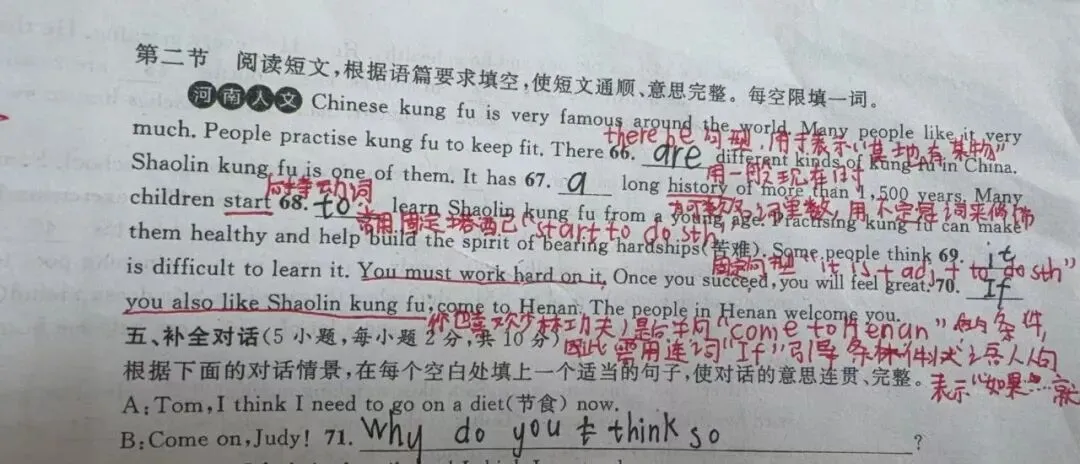 第二节 阅读短文,根据语篇要求填空,使短文通顺、意思完整。每空限填一词。
河南人文 Chinese kung fu is very famous around the world. Many people like it very
there be 句型,用于表示“某地有某物”
much. People practise kung fu to keep fit. There 66. are different kinds of kung fu in China.
用一般现在时
Shaolin kung fu is one of them. It has 67. a long history of more than 1,500 years. Many
动词
用不定冠词来修饰
children start 68. to learn Shaolin kung fu from a young age. Practising kung fu can make
常用固定搭配 “start to do sth”
them healthy and help build the spirit of bearing hardships(苦难). Some people think 69. it
固定句型 “it is + adj + to do sth”
is difficult to learn it. You must work hard on it. Once you succeed, you will feel great. 70. If
you also like Shaolin kung fu, come to Henan. The people in Henan welcome you.
你也喜欢少林功夫,是后半句“come to Henan”的条件,
五、补全对话(5小题,每小题2分,共10分)
因此需用连词“If”引导条件状语从句
根据下面的对话情景,在每个空白处填上一个适当的句子,使对话的意思连贯、完整。
表示“如果…就
A:Tom,I think I need to go on a diet(节食) now.
B:Come on,Judy! 71. Why do you think so ?